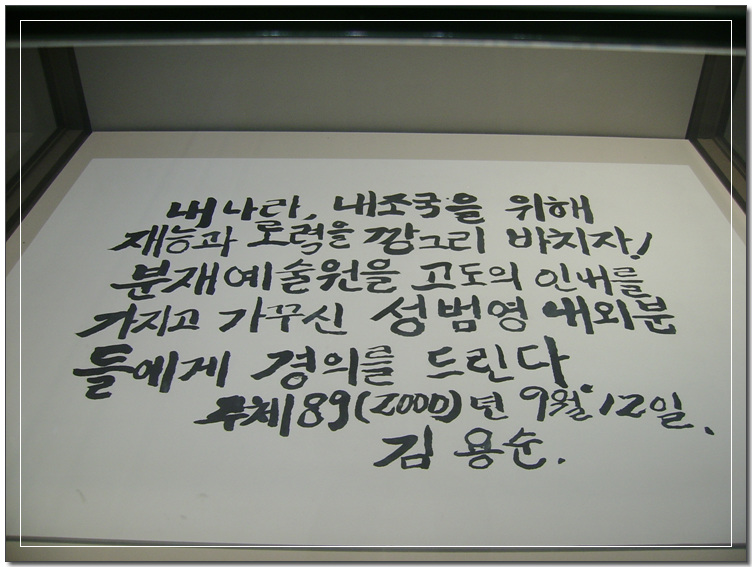 내나라, 내조국을 위해
재능과 로력을 깡그리 바치자!
분재예술원을 고도의 인내를
가지고 가꾸신 성범영 내외분
들에게 경의를 드린다
주체89(2000)년 9월 12일.
김용순.